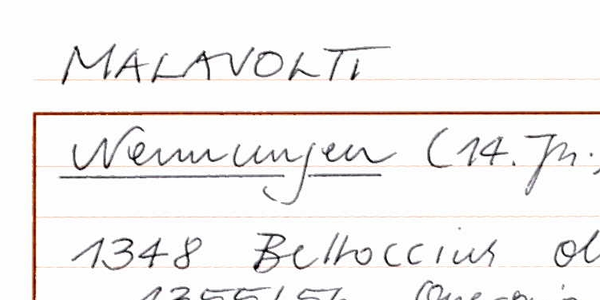 MALAVOLTI
Nennungen (14. Jh.
1348 Beltoccius
1355/56